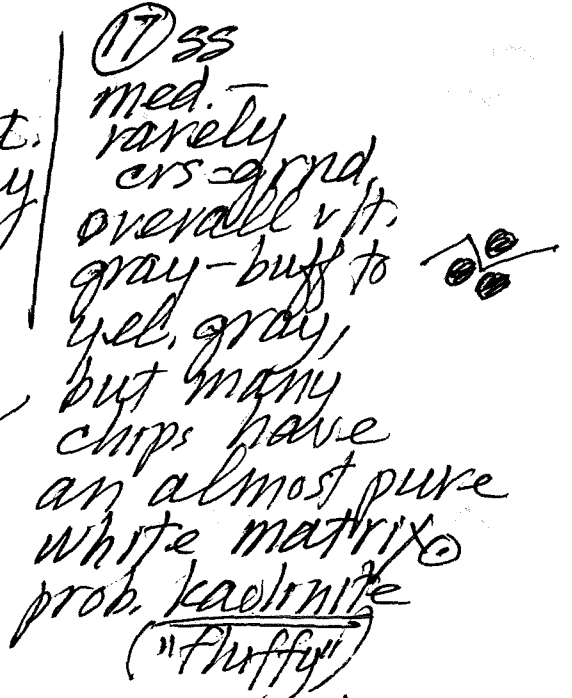 17 ss
med.-
rarely
crs-grnd,
overall v lt.
gray-buff to
yel. gray,
but many
chips have
an almost pure
white matrix.
prob. kaolinite
("fluffy")
t.
y